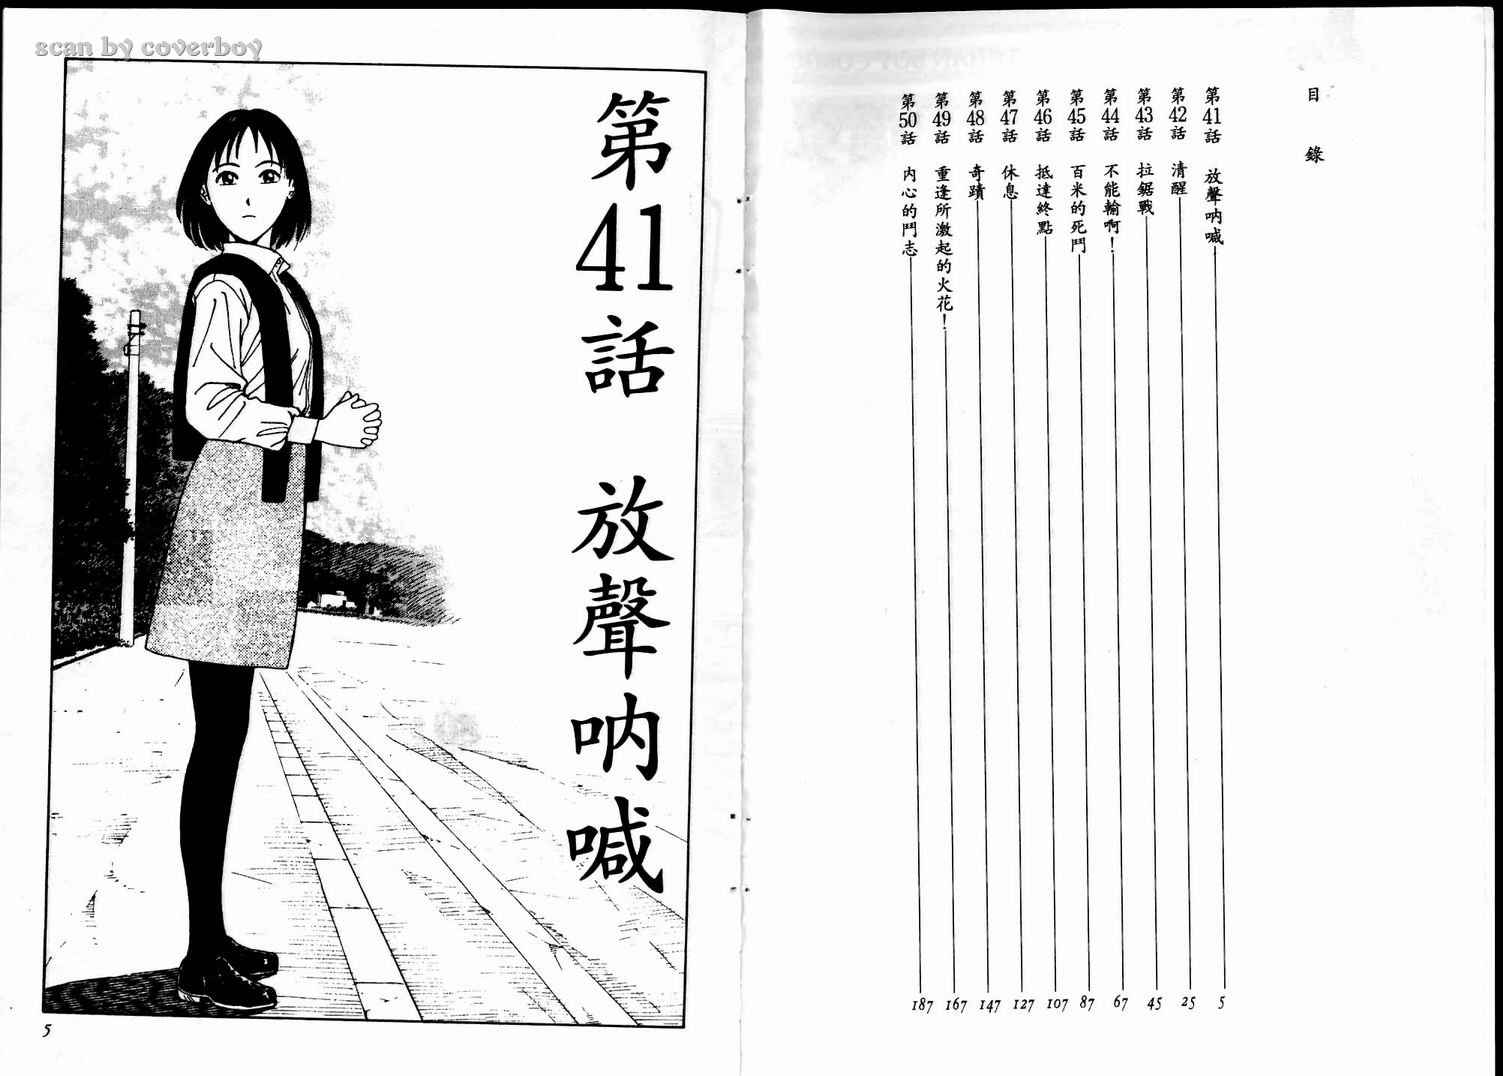 scan by coverboy
目錄
第41話 放聲吶喊 5
第42話 清醒 25
第43話 拉鋸戰 45
第44話 不能輸啊! 67
第45話 百米的死鬥 87
第46話 抵達終點 107
第47話 休息 127
第48話 奇蹟 147
第49話 重逢所激起的火花! 167
第50話 內心的鬥志 187
第41話 放聲吶喊
5